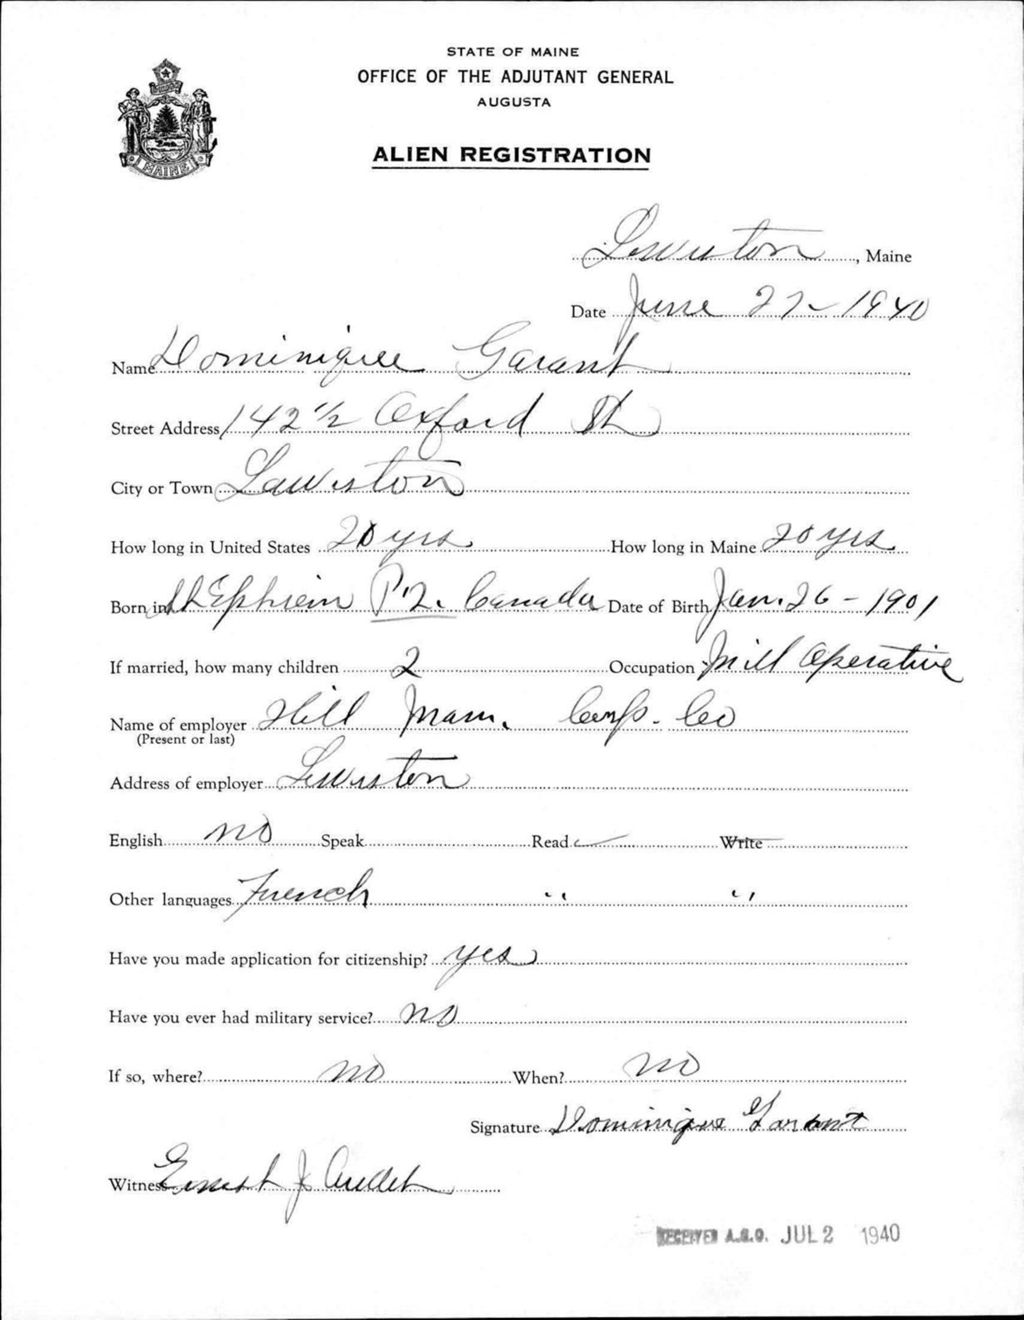 STATE OF MAINE
OFFICE OF THE ADJUTANT GENERAL
AUGUSTA
ALIEN REGISTRATION
MAINE
Lewiston, Maine
Date June 27 - 1940
Name Dominique Garant
Street Address 142 1/2 Oxford St
City or Town Lewiston
How long in United States 20 yrs How long in Maine 20 yrs
Born in St Ephriem P.Q. Canada Date of Birth Jan. 26 - 1901
If married, how many children 2 Occupation Mill Operative
Name of employer Hill Manu. Corp. Co
(Present or last)
Address of employer Lewiston
English no Speak Read ✓ Write
Other languages French " "
Have you made application for citizenship? yes
Have you ever had military service? no
If so, where? no When? no
Signature Dominique Garant
Witness Ernest J Audet
RECEIVED A.G.O. JUL 2 1940